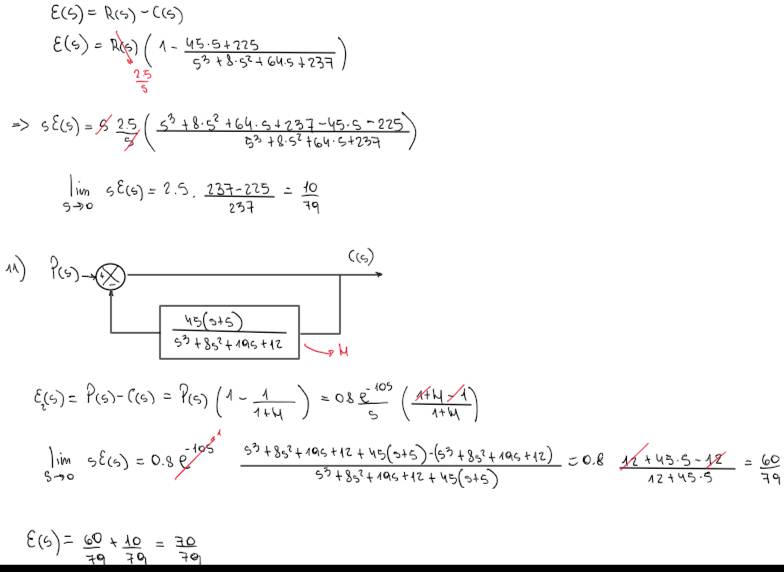 E(s) = R(s) - C(s)
E(s) = R(s) ( 1 - (45·s+225)/(s³+8·s²+64·s+237) )
2.5/s
=> sE(s) = s 2.5/s ( (s³+8·s²+64·s+237-45·s-225)/(s³+8·s²+64·s+237) )
lim s→0 sE(s) = 2.5 · (237-225)/237 = 10/79
11) P(s) + - C(s)
45(s+5)/(s³+8s²+19s+12) → H
E₂(s) = P(s) - C(s) = P(s) ( 1 - 1/(1+H) ) = 0.8 e^(-10s)/s ( (1+H-1)/(1+H) )
lim s→0 sE(s) = 0.8 e^(-10s) 1 (s³+8s²+19s+12+45(s+5)-(s³+8s²+19s+12))/(s³+8s²+19s+12+45(s+5)) = 0.8 (12+45·5-12)/(12+45·5) = 60/79
E(s) = 60/79 + 10/79 = 70/79